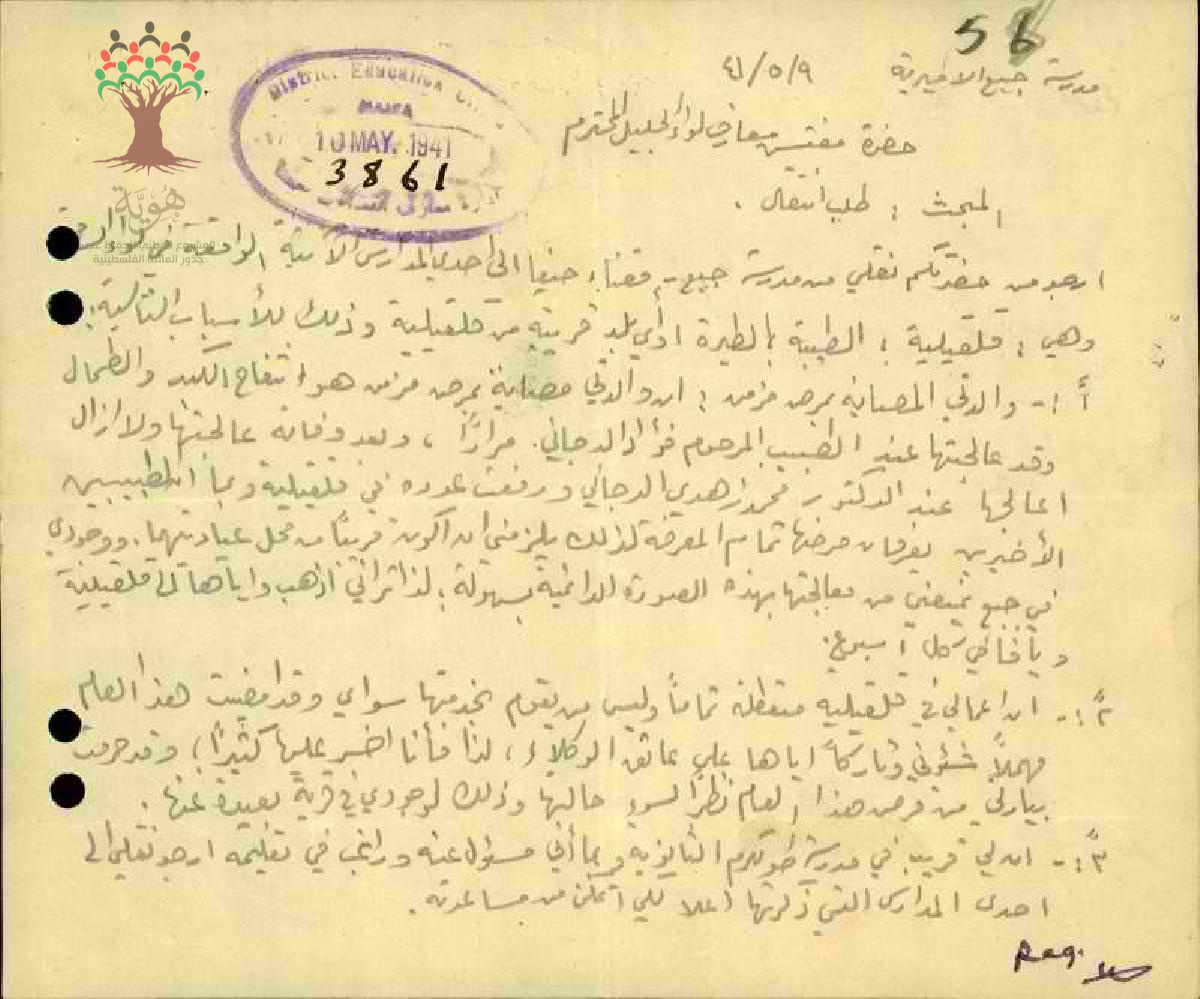 56
مدرسة جبع الاميرية ٤١/٥/٩
District Education
HAIFA
10 MAY. 1941
3861
هُوِيَّة
جذور العائلة الفلسطينية
حضرة مفتش معارف لواء الجليل المحترم
المبحث : طلب انتقال .
ارجو من حضرتكم نقلي من مدرسة جبع - قضاء حيفا الى احدى المدارس الآتية الواقعة في
وهي : قلقيلية ؛ الطيبة ؛ الطيرة او أي بلد قريبة من قلقيلية وذلك للأسباب التالية :
أ :- والدتي المصابة بمرض مزمن ؛ ان والدتي مصابة بمرض مزمن هو انتفاخ الكبد والطحال
وقد عالجتها عند الطبيب المرحوم فؤاد الدجاني مراراً ، وبعد وفاته عالجتها ولا ازال
اعالجها عند الدكتور محمد زهدي الدجاني ورفعت عوده في قلقيلية وبما ان الطبيبين
الأخيرين يعرفان مرضها تمام المعرفة لذلك يلزمني ان اكون قريباً من محل عيادتهما . ووجودي
في جبع يمنعني من معالجتها بهذه الصورة الدائمية بسهولة ؛ لذا تراني اذهب واياها الى قلقيلية
ويافا في كل اسبوع .
٢ً :- ان اعمالي في قلقيلية متعطلة تماماً وليس من يقوم بخدمتها سواي وقد امضيت هذا العام
مهملاً شئوني وتاركاً اياها على عاتق الوكلاء ، لذا فأنا اخسر عليها كثيراً ، وقد حرمت
بيارتي من قرض هذا العام نظراً لسوء حالها وذلك لوجودي في قرية بعيدة عنها .
٣ً :- ان لي قريب في مدرسة طولكرم الثانوية وبما أني مسؤول عنه وراغب في تعليمه ارجو نقلي الى
احدى المدارس التي ذكرتها اعلا لكي اتمكن من مساعدته .
Reg.